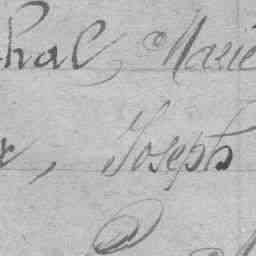 hal, Marie
, Joseph